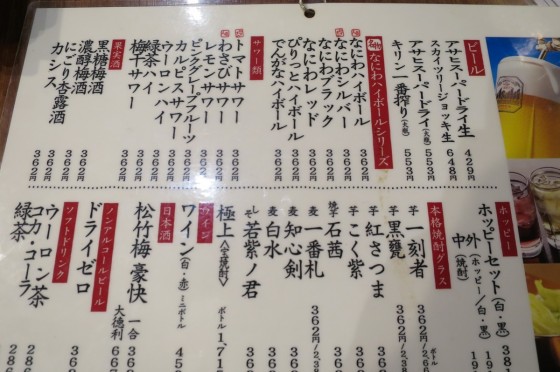 ビール
アサヒスーパードライ生 429円
スカイツリージョッキ生 648円
アサヒスーパードライ(大瓶) 553円
キリン一番搾り(大瓶) 553円
なにわハイボールシリーズ
なにわハイボール 362円
なにわシルバー 362円
なにわブラック 362円
なにわレッド 362円
ぴりっとハイボール 362円
でんがなハイボール 362円
サワー類
トマトサワー 362円
わさびサワー 362円
レモンサワー 362円
ピンクグレープフルーツ 362円
カルピスサワー 362円
ウーロンハイ 362円
緑茶ハイ 362円
梅干サワー 362円
果実酒
黒糖梅酒 362円
濃醇梅酒 362円
にごり杏露酒 362円
カシス 362円
ホッピー
ホッピーセット(白・黒)
外(ホッピー/白・黒)
中(焼酎)
本格焼酎グラス
芋 一刻者
芋 黒甕
芋 紅さつま
芋 こく紫
焼芋 石茜
麦 一番札 362円
麦 知心剣 362円
麦 白水 362円
しそ 若紫ノ君 362円
極上 ボトル
ワイン
ワイン(白・赤)ミニボトル
日本酒
松竹梅 豪快 一合
大徳利
ノンアルコールビール
ドライゼロ
ソフトドリンク
ウーロン茶
コカ・コーラ
緑茶